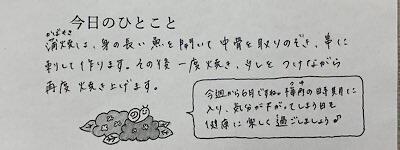 今日のひとこと
かばやき
蒲焼は、身の長い魚を開いて中骨を取りのぞき、串に
刺して作ります。その後一度焼き、タレをつけながら
再度焼き上げます。
今週から6月ですね。梅雨の時期に
入り、気分が下がってしまう日も
健康に楽しく過ごしましょう♂